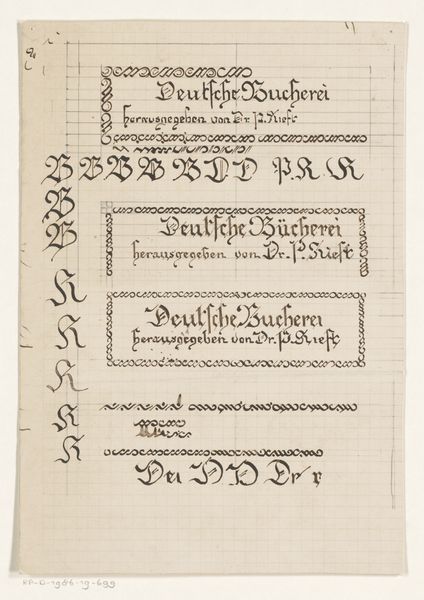 Deutsche Bucherei
herausgegeben von Dr. P. Kieft
B B B B B D D P. K K
B
B
Deutsche Bücherei
herausgegeben von Dr. P. Kieft
K
Deutsche Bucherei
herausgegeben von Dr. P. Kieft
K
K
K
K
Dei D D Dr r
RP-D-1986-19-699